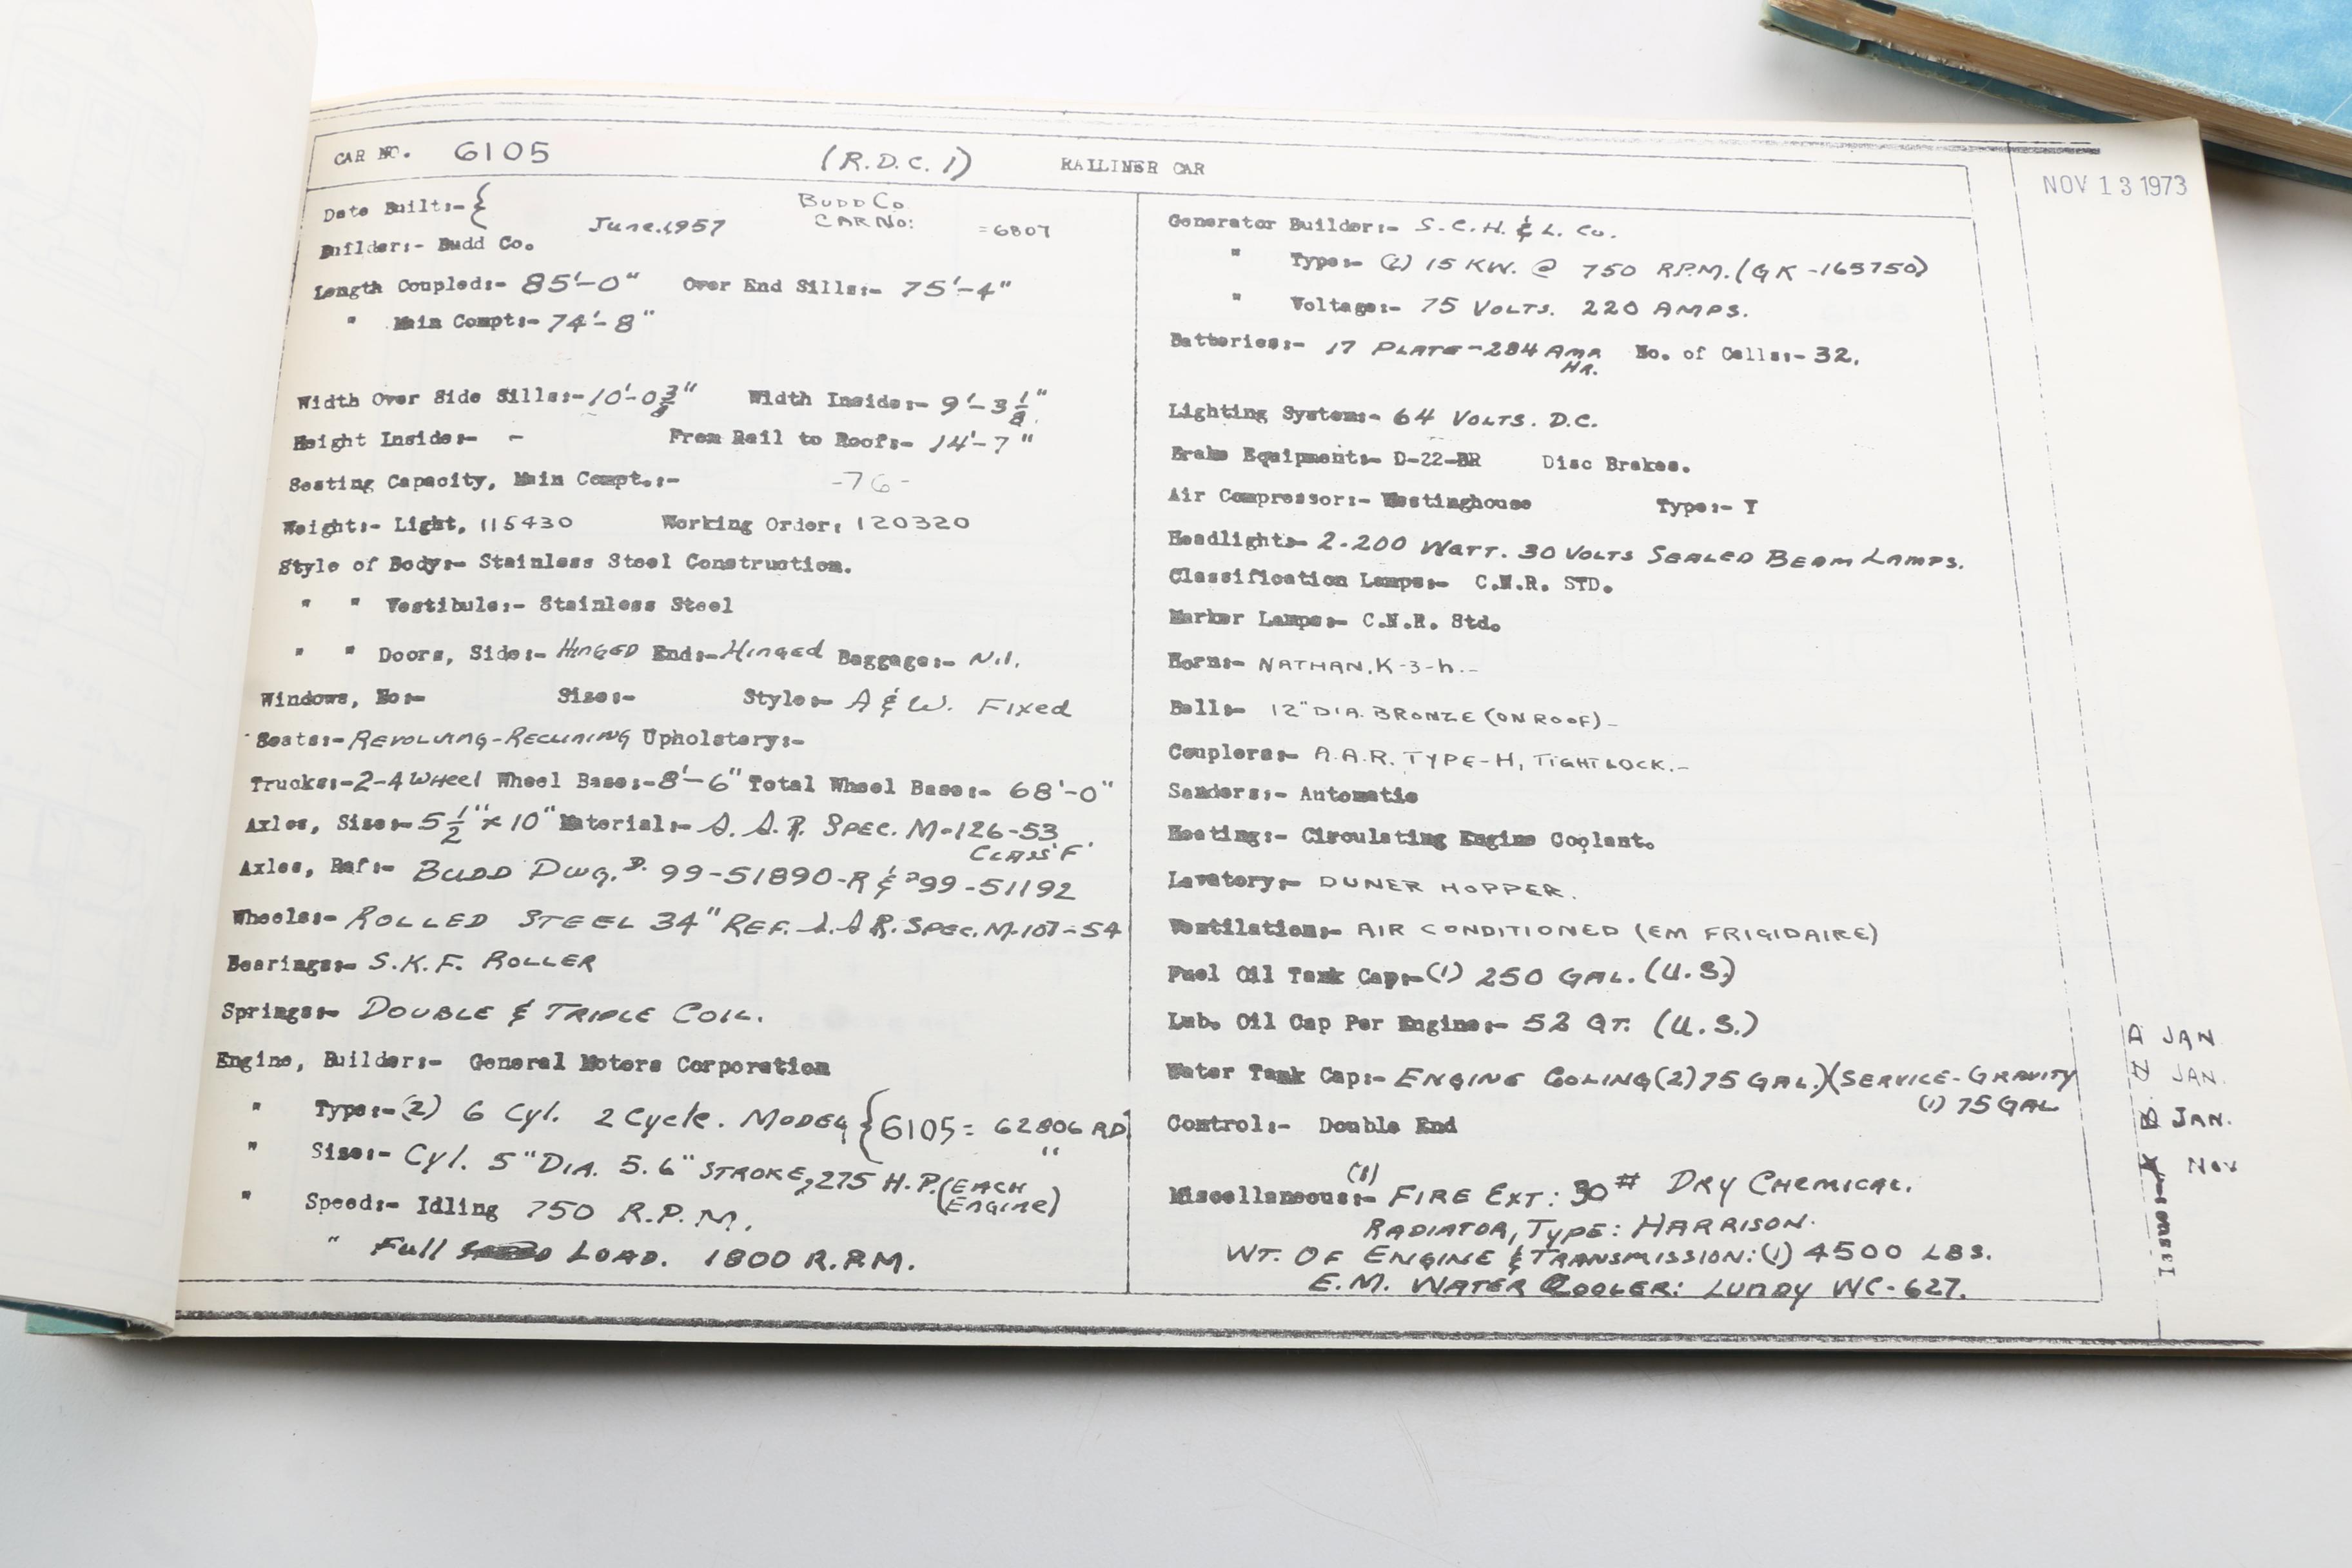 CAR NO. 6105 (R.D.C. 1) RAILINER CAR
NOV 13 1973
Date Built:- { June.1957 BUDD Co CAR No: =6807
Builder:- Budd Co.
Length Coupled:- 85'-0" Over End Sills:- 75'-4"
" Main Compt:- 74'-8"
Width Over Side Sills:- 10'-0 3/8" Width Inside:- 9'-3 1/8"
Height Inside:- - From Rail to Roof:- 14'-7"
Seating Capacity, Main Compt.:- -76-
Weight:- Light, 115430 Working Order: 120320
Style of Body:- Stainless Steel Construction.
" " Vestibule:- Stainless Steel
" " Doors, Side:- HINGED End:- HINGED Baggage:- Nil.
Windows, No:- Size:- Style:- A & W. Fixed
Seats:- REVOLVING-RECLINING Upholstery:-
Trucks:- 2-4 WHEEL Wheel Base:- 8'-6" Total Wheel Base:- 68'-0"
Axles, Size:- 5 1/2" x 10" Material:- A.A.R. SPEC. M-126-53
CLASS 'F'
Axles, Ref:- BUDD DWG. D. 99-51890-R & D99-51192
Wheels:- ROLLED STEEL 34" REF. A.A.R. SPEC. M-107-54
Bearings:- S.K.F. ROLLER
Springs:- DOUBLE & TRIPLE COIL.
Engine, Builder:- General Motors Corporation
" Type:- (2) 6 Cyl. 2 Cycle. MODEL { 6105 = 62806 RD
" Size:- Cyl. 5" DIA. 5.6" STROKE, 275 H.P. (EACH ENGINE) "
" Speed:- Idling 750 R.P.M.
" Full LOAD. 1800 R.P.M.
Generator Builder:- S.C.H. & L. Co.
" Type:- (2) 15 KW. @ 750 R.P.M. (GK-165750)
" Voltage:- 75 VOLTS. 220 AMPS.
Batteries:- 17 PLATE-284 AMP. HR. No. of Cells:- 32.
Lighting System:- 64 VOLTS. D.C.
Brake Equipment:- D-22-BR Disc Brakes.
Air Compressor:- Westinghouse Type:- Y
Headlight:- 2-200 WATT. 30 VOLTS SEALED BEAM LAMPS.
Classification Lamps:- C.N.R. STD.
Marker Lamps:- C.N.R. Std.
Horn:- NATHAN, K-3-h.-
Bell:- 12" DIA. BRONZE (ON ROOF)-
Couplers:- A.A.R. TYPE-H, TIGHTLOCK.-
Sanders:- Automatic
Heating:- Circulating Engine Coolant.
Lavatory:- DUNER HOPPER.
Ventilation:- AIR CONDITIONED (EM FRIGIDAIRE)
Fuel Oil Tank Cap:- (1) 250 GAL. (U.S.)
Lub. Oil Cap Per Engine:- 52 QT. (U.S.)
Water Tank Cap:- ENGINE COLING (2) 75 GAL.) (SERVICE-GRAVITY
(1) 75 GAL
Control:- Double End
(1)
Miscellaneous:- FIRE EXT: 30# DRY CHEMICAL.
RADIATOR, TYPE: HARRISON.
WT. OF ENGINE & TRANSMISSION: (1) 4500 LBS.
E.M. WATER COOLER: LUNDY WC-627.
D JAN
JAN.
JAN.
Nov